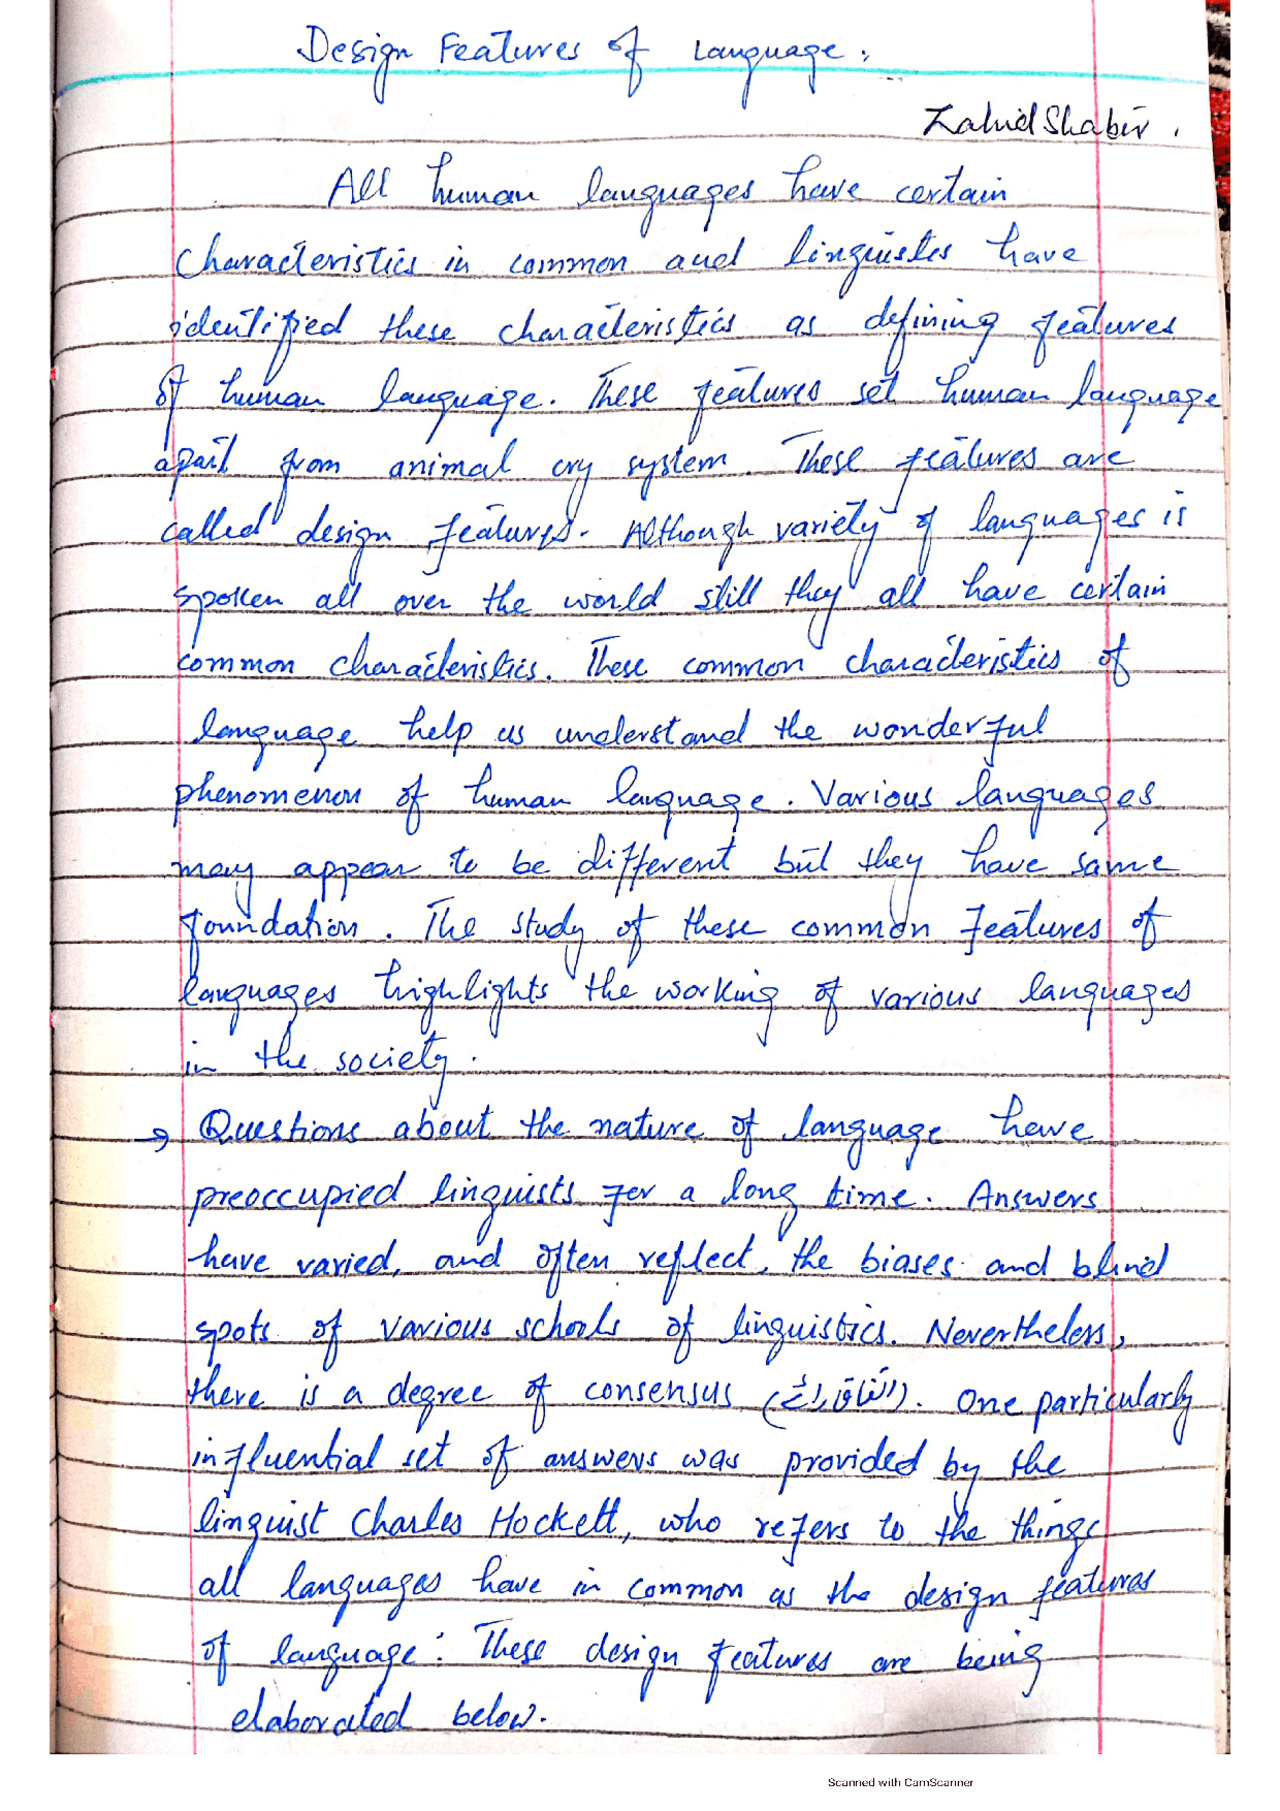 Design Features of Language.
Zahid Shabir.
All human languages have certain
characteristics in common and linguistes have
identified these characteristics as defining features
of human language. These features set human language
apart from animal cry system. These features are
called design features. Although variety of languages is
spoken all over the world still they all have certain
common characteristics. These common characteristics of
language help us understand the wonderful
phenomenon of human language. Various languages
may appear to be different but they have same
foundation. The study of these common features of
languages highlights the working of various languages
in the society.
→ Questions about the nature of language have
preoccupied linguists for a long time. Answers
have varied, and often reflect, the biases and blind
spots of various schools of linguistics. Nevertheless,
there is a degree of consensus (اتفاق رائے). One particularly
influential set of answers was provided by the
linguist Charles Hockett, who refers to the things
all languages have in common as the design features
of language: These design features are being
elaborated below.
Scanned with CamScanner